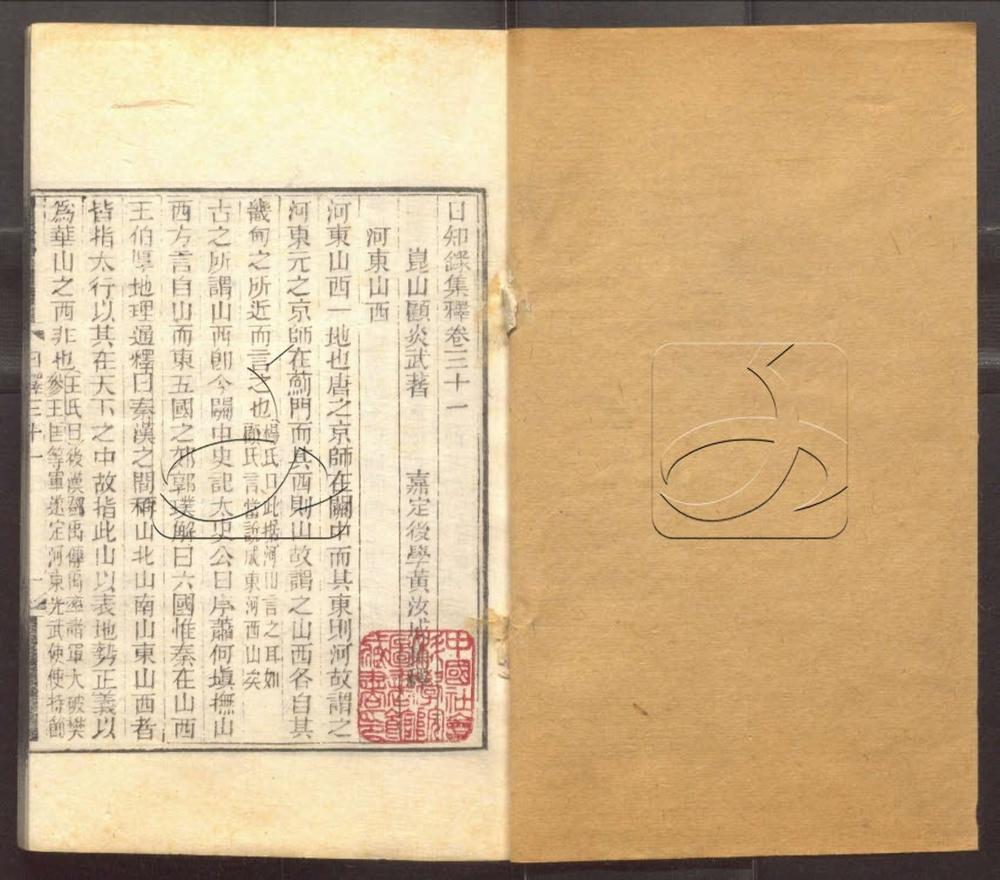 日知錄集釋卷三十一
崑山顧炎武著　嘉定後學黃汝成集釋
河東山西
河東山西一地也唐之京師在關中而其東則河故謂之
河東元之京師在薊門而其西則山故謂之山西各自其
畿甸之所近而言之也楊氏曰此據河山言之耳如
顧氏言當說成東河西山矣
古之所謂山西即今關中史記太史公自序蕭何塡撫山
西方言自山而東五國之郊郭璞解曰六國惟秦在山西
王伯厚地理通釋曰秦漢之間稱山北山南山東山西者
皆指太行以其在天下之中故指此山以表地勢正義以
爲華山之西非也汪氏曰後漢鄧禹傳禹率諸軍大破樊
參王匡等軍遂定河東光武使使持節
中國社會科學院圖書館藏書